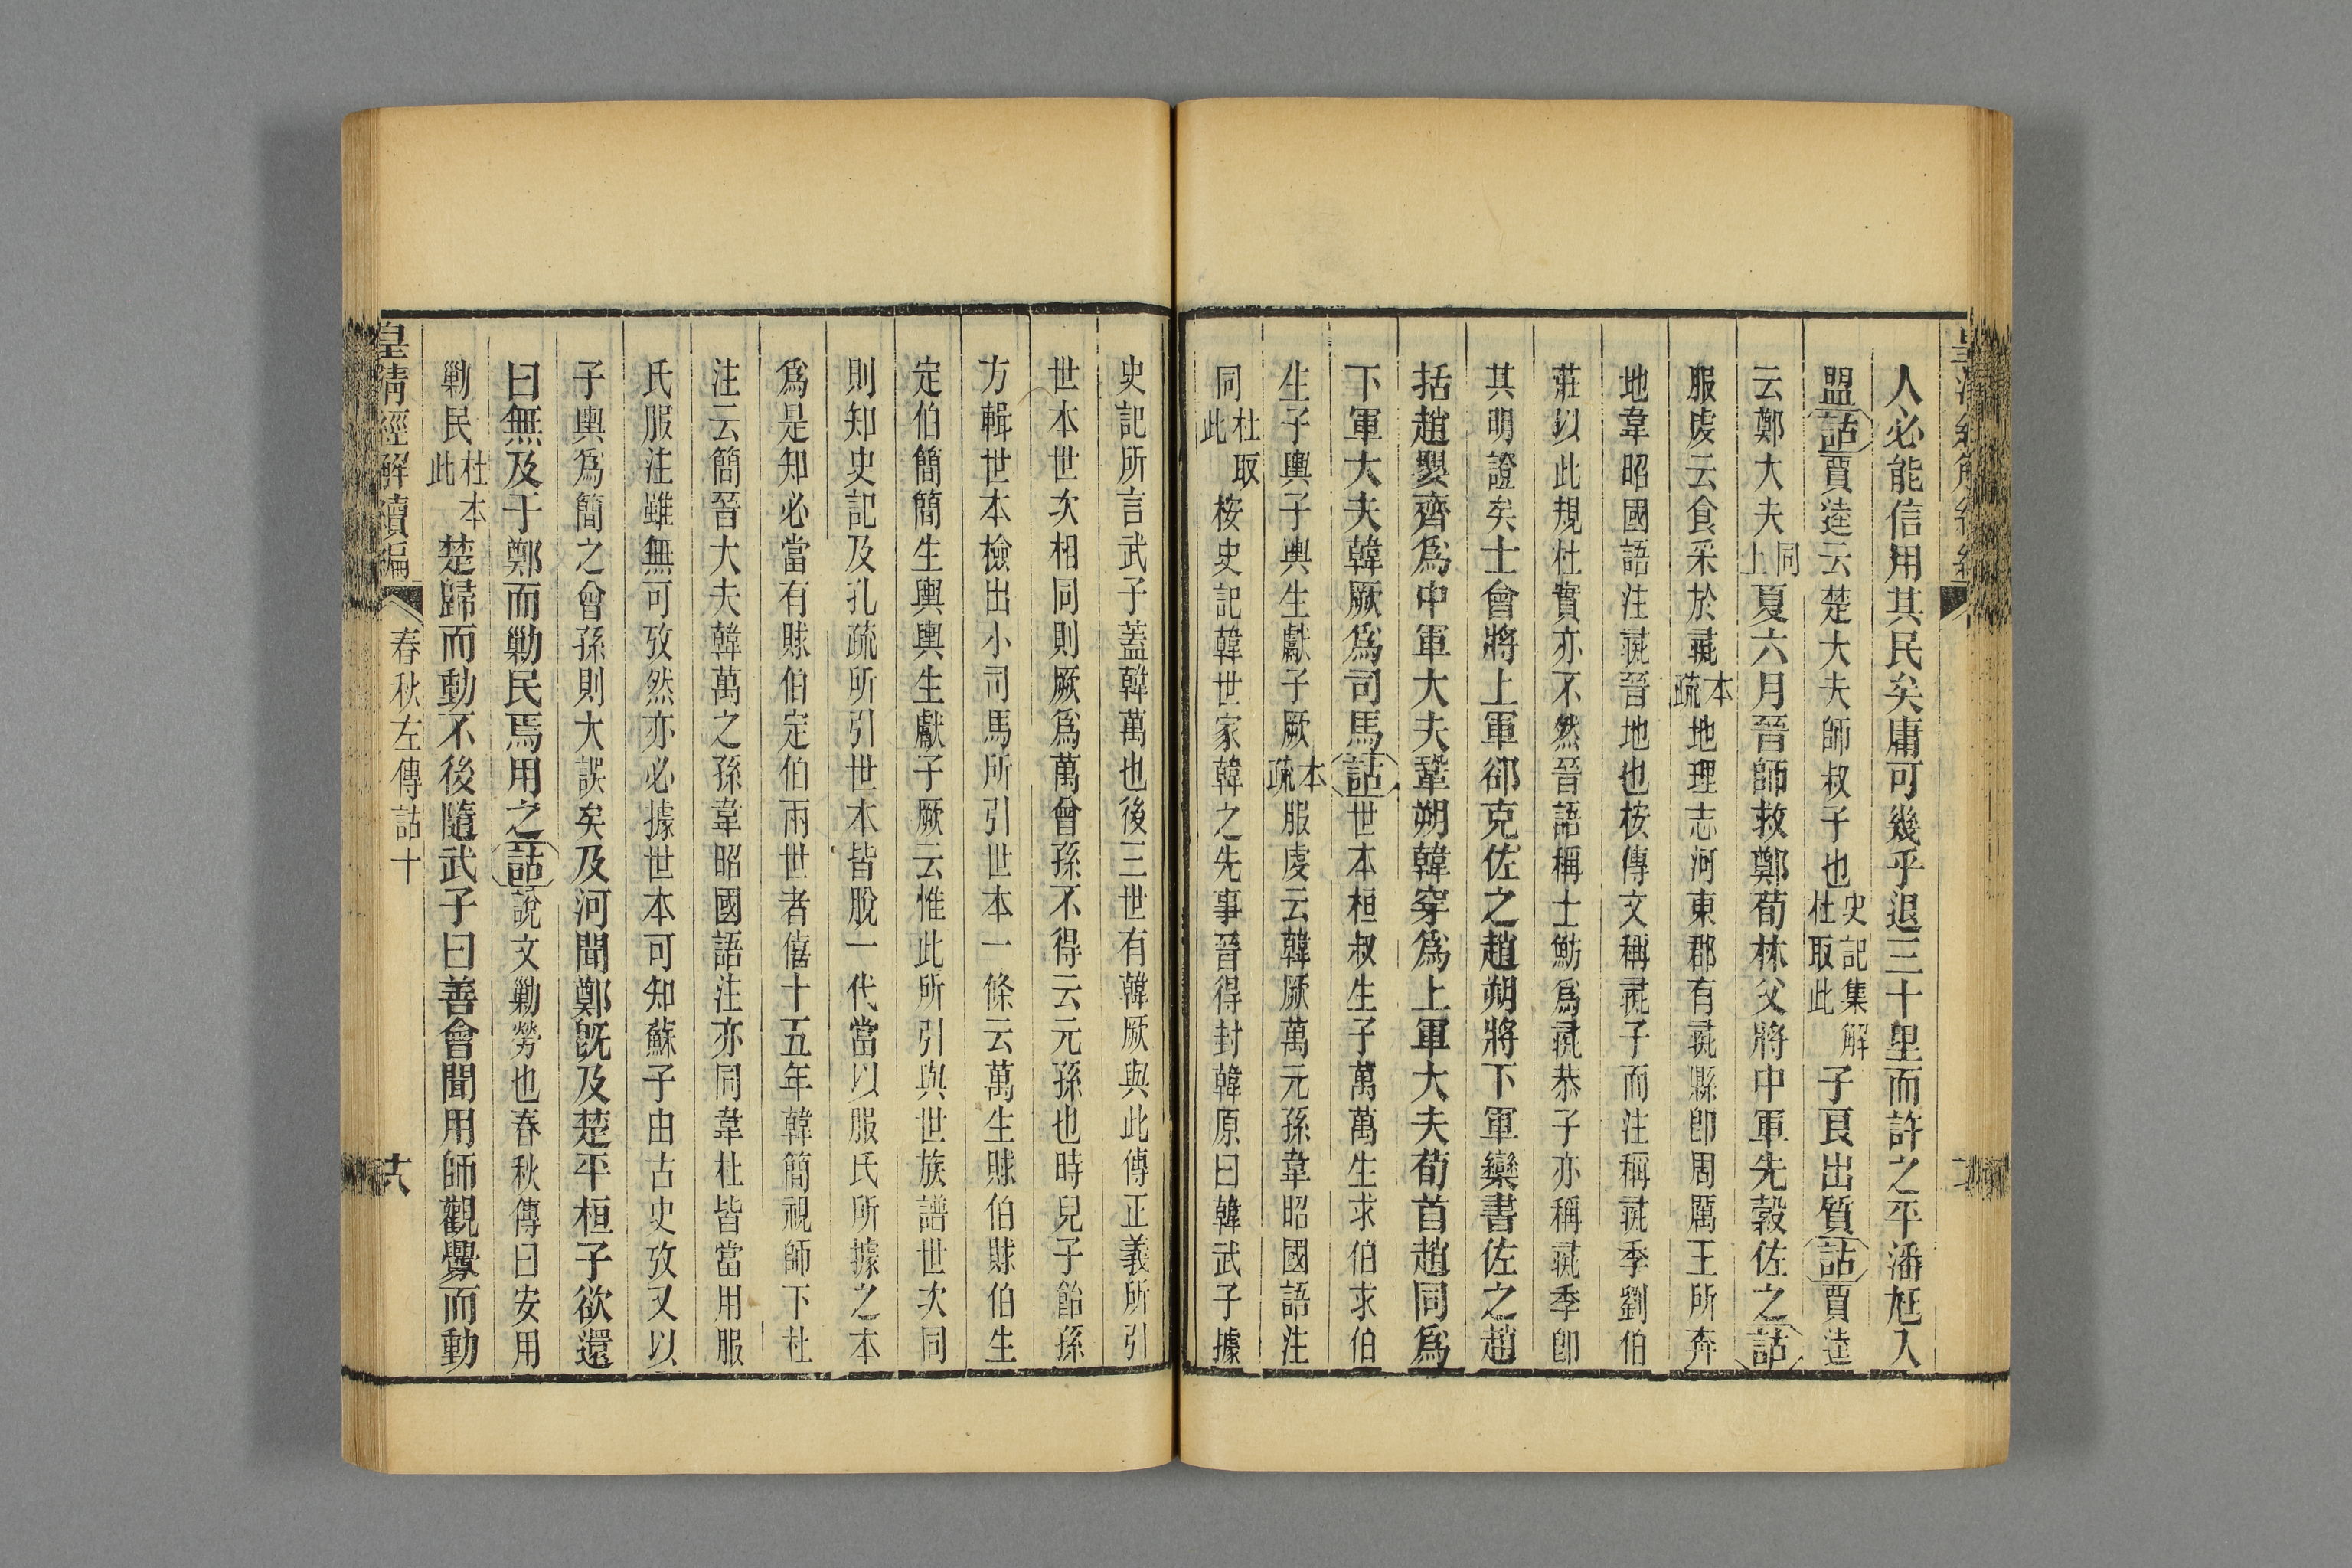 人必能信用其民矣庸可幾乎退三十里而許之平潘尪入
盟詁賈逵云楚大夫師叔子也史記集解杜取此子良出質詁賈逵
云鄭大夫同上夏六月晉師救鄭荀林父將中軍先縠佐之詁
服虔云食采於彘本疏地理志河東郡有彘縣卽周厲王所奔
地韋昭國語注彘晉地也桉傳文稱彘子而注稱彘季劉伯
莊以此規杜實亦不然晉語稱士魴爲彘恭子亦稱彘季卽
其明證矣士會將上軍郤克佐之趙朔將下軍欒書佐之趙
括趙嬰齊爲中軍大夫鞏朔韓穿爲上軍大夫荀首趙同爲
下軍大夫韓厥爲司馬詁世本桓叔生子萬萬生求伯求伯
生子輿子輿生獻子厥本疏服虔云韓厥萬元孫韋昭國語注
同杜取此桉史記韓世家韓之先事晉得封韓原曰韓武子據
史記所言武子蓋韓萬也後三世有韓厥與此傳正義所引
世本世次相同則厥爲萬曾孫不得云元孫也時兒子飴孫
方輯世本檢出小司馬所引世本一條云萬生賕伯賕伯生
定伯簡簡生輿輿生獻子厥云惟此所引與世族譜世次同
則知史記及孔疏所引世本皆脫一代當以服氏所據之本
爲是知必當有賕伯定伯兩世者僖十五年韓簡視師下杜
注云簡晉大夫韓萬之孫韋昭國語注亦同韋杜皆當用服
氏服注雖無可攷然亦必據世本可知蘇子由古史攷又以
子輿爲簡之會孫則大誤矣及河聞鄭旣及楚平桓子欲還
曰無及于鄭而勦民焉用之詁說文勦勞也春秋傳曰安用
勦民杜本此楚歸而動不後隨武子曰善會聞用師觀釁而動
皇清經解續編 春秋左傳詁十 六